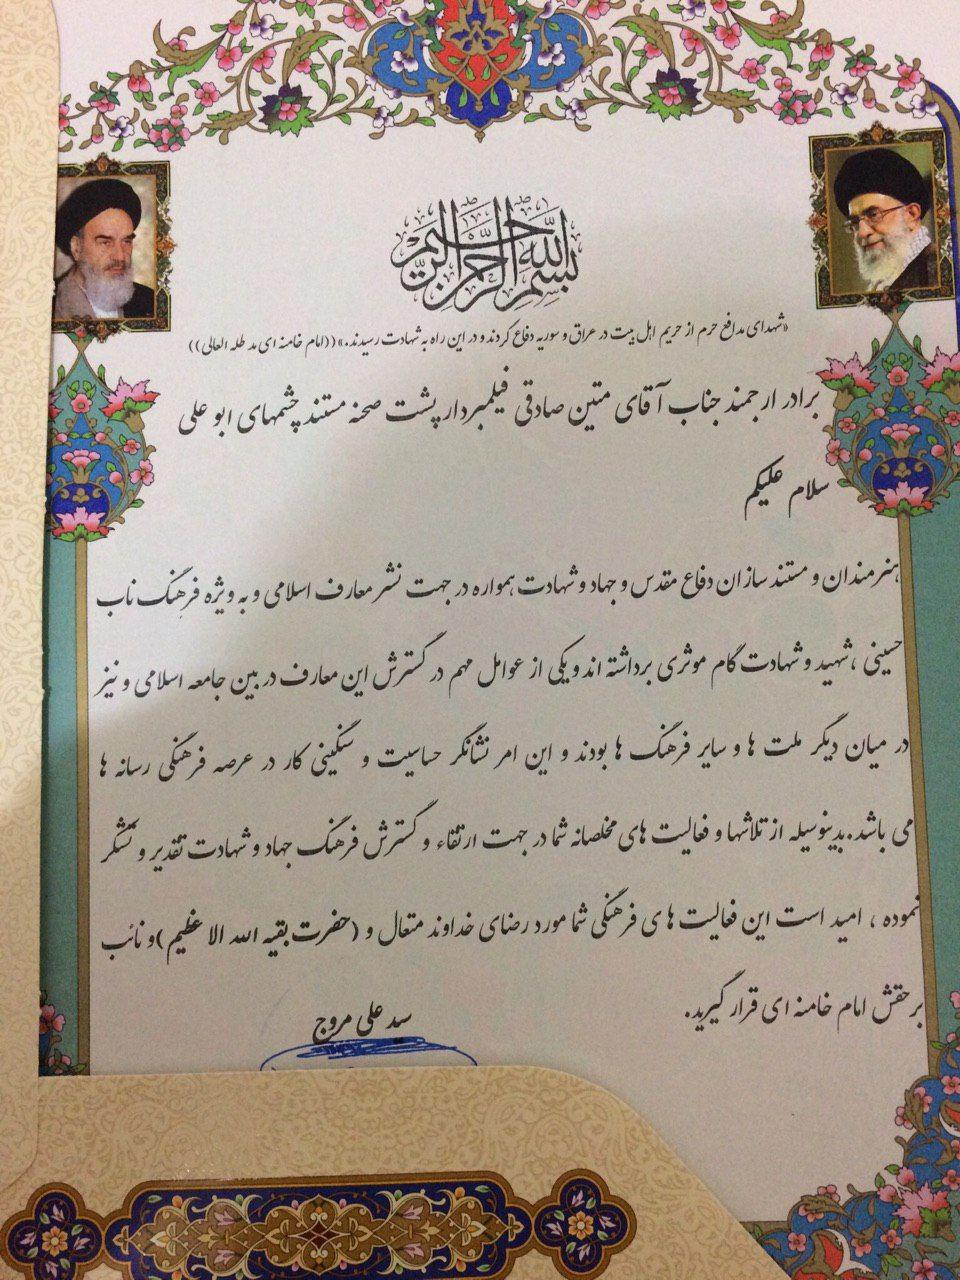 بسم الله الرحمن الرحیم
«شهدای مدافع حرم از حریم اهل بیت در عراق و سوریه دفاع کردند و در این راه به شهادت رسیدند.» ((امام خامنه ای مد ظله العالی))
برادر ارجمند جناب آقای متین صادقی فیلمبردار پشت صحنه مستند چشمهای ابو علی
سلام علیکم
هنرمندان و مستند سازان دفاع مقدس و جهاد و شهادت همواره در جهت نشر معارف اسلامی و به ویژه فرهنگ ناب
حسینی ، شهید و شهادت گام موثری برداشته اند و یکی از عوامل مهم در گسترش این معارف در بین جامعه اسلامی و نیز
در میان دیگر ملت ها و سایر فرهنگ ها بودند و این امر نشانگر حساسیت و سنگینی کار در عرصه فرهنگی رسانه ها
می باشد. بدینوسیله از تلاشها و فعالیت های مخلصانه شما در جهت ارتقاء و گسترش فرهنگ جهاد و شهادت تقدیر و تشکر
نموده ، امید است این فعالیت های فرهنگی شما مورد رضای خداوند متعال و (حضرت بقیه الله الا عظیم )و نائب
بر حقش امام خامنه ای قرار گیرید.
سید علی مروج